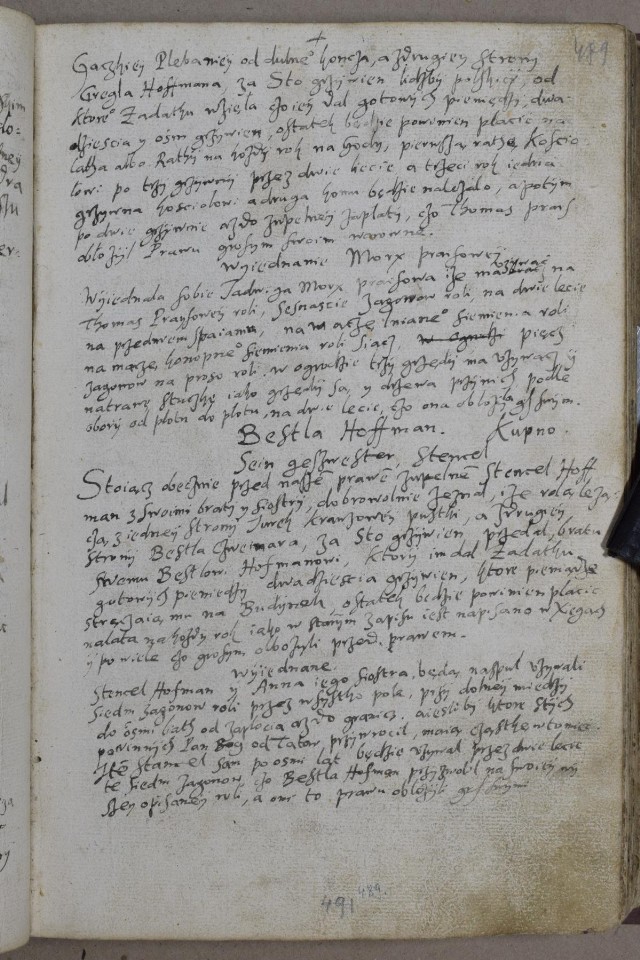 489
Gaczkiey Plebaniey od dulneo kończa, a zdrugiey Strony
Gregla Hoffmana, za Sto grzywien liczby polskiey, od
ktoreo Zadatku wzięla czo iey dal gotowych pieniędzy, dwa
dziescia y osm grzywien, ostatek będzie powinien placic na
latha albo Rathy na kożdy rok na gody, pierwszą ratę Koscio
lowi po trzy grzywny przez dwie liecie a trzeci rok iedna
grzywna kosciolowi a druga komu będzie nalezało, a potym
po dwie grzywnie aż do zupelney zaplaty, czo Thomas Prais
oblożyl Prawu groszym swoim
Wyiednanie Morx Praisowey
Wyiednala sobie Jadwiga Morx Praisowa iże ma używać na
Thomas Praysowey roli, Sesnascie Zagonow roli na dwie liecie
na przednem na maczę lnianeo Siemienia roli
na maczę konopneo siemienia roli siacz, pięcz
zagonow na proso roli. w ogrodzie trzy grzędy ma używacz y
natrawę Stuczkę iako grzędy są, y drzewa podle
obory od plotu do plotu, na dwie lecie, czo ona oblożyla groszym.
Bestla Hoffman. Kupno.
Sein geszwester, Stencel
Stoiącz obecznie przed naszem prawem zupelnem Stencel Hoff
man zswoimi braty y Siostry, dobrowolnie zeznal, iże rolą leżą
czą, z iedney Strony Jurek kranzowey pustki, a zdrugiey
Strony Bestla za Sto grzywien, przedal bratu
swemu Bestlowi Hofmanowi, ktory im dal Zadatku
gotowych pieniędzy dwadziescia grzywien, ktore pieniądze
mu na Budynek, ostatek będzie powinien placic
nalata na kożdy rok iako w starym zapisu iest napisano w Xięgach
y powiele czo groszym oblożyli przed prawem.
Wyiednanie.
Stencel Hofman y Anna iego Siostra, będą naspul używali
Siedm zagonow roli przez wszystko pole, przy dolney miedzy
do osmi liath od zaplocia aż do granicz. aiesliby ktore Stych
powinnych Pan Bog od Tatar przywrocil, maią cząstkę wtomiec.
Ite Stancel sam po osmi lat będzie używal przez dwie lecie
te siedm zagonow, czo Bestla Hofman przyzwolil na swoiey wy
szey opisaney roli, a oni to prawu oblożyli groszym
491 489.